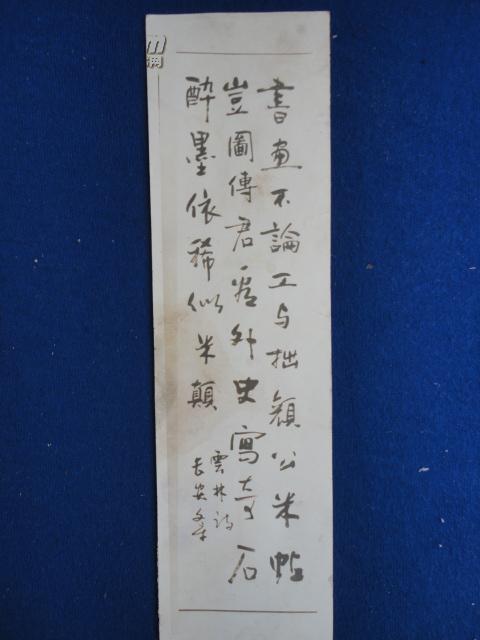 書画不論工与拙顏公米帖
豈圖傳君看外史寫奇石
酔墨依稀似米顛
雲林詩
長安
网